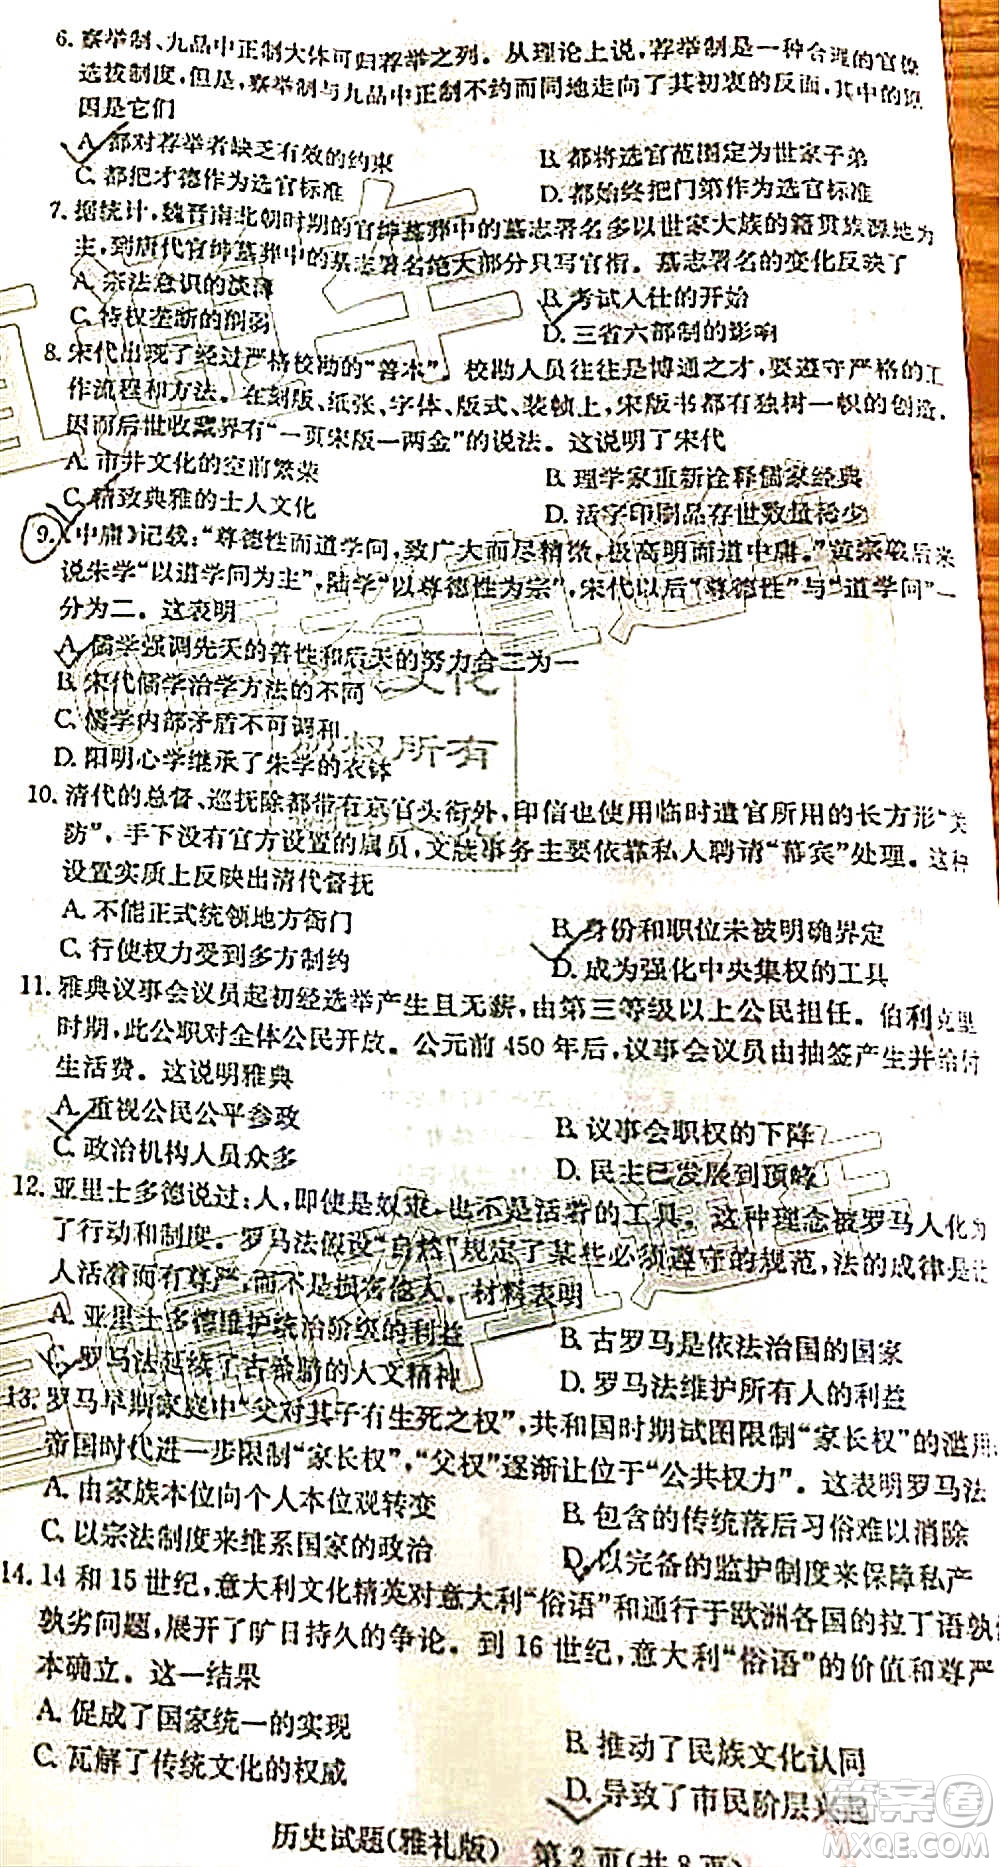 6. 察举制、九品中正制大体可归荐举之列。从理论上说，荐举制是一种合理的官僚
选拔制度，但是，察举制与九品中正制不约而同地走向了其初衷的反面，其中的原
因是它们
A. 都对荐举者缺乏有效的约束 B. 都将选官范围定为世家子弟
C. 都把才德作为选官标准 D. 都始终把门第作为选官标准
7. 据统计，魏晋南北朝时期的官绅墓葬中的墓志署名多以世家大族的籍贯族源地为
主，到唐代官绅墓葬中的墓志署名绝大部分只写官衔。墓志署名的变化反映了
A. 宗法意识的淡薄 B. 考试入仕的开始
C. 特权垄断的削弱 D. 三省六部制的影响
8. 宋代出现了经过严格校勘的“善本”，校勘人员往往是博通之才，要遵守严格的工
作流程和方法。在刻版、纸张、字体、版式、装帧上，宋版书都有独树一帜的创造，
因而后世收藏界有“一页宋版一两金”的说法。这说明了宋代
A. 市井文化的空前繁荣 B. 理学家重新诠释儒家经典
C. 精致典雅的士人文化 D. 活字印刷品存世数量稀少
9.《中庸》记载：“尊德性而道学问，致广大而尽精微，极高明而道中庸。”黄宗羲后来
说朱学“以道学问为主”，陆学“以尊德性为宗”，宋代以后“尊德性”与“道学问”一
分为二。这表明
A. 儒学强调先天的善性和后天的努力合二为一
B. 宋代儒学治学方法的不同
C. 儒学内部矛盾不可调和
D. 阳明心学继承了朱学的衣钵
10. 清代的总督、巡抚除都带有京官头衔外，印信也使用临时遣官所用的长方形“关
防”，手下没有官方设置的属员，文牍事务主要依靠私人聘请“幕宾”处理。这种
设置实质上反映出清代督抚
A. 不能正式统领地方衙门 B. 身份和职位未被明确界定
C. 行使权力受到多方制约 D. 成为强化中央集权的工具
11. 雅典议事会议员起初经选举产生且无薪，由第三等级以上公民担任。伯利克里
时期，此公职对全体公民开放。公元前 450 年后，议事会议员由抽签产生并给付
生活费。这说明雅典
A. 重视公民公平参政 B. 议事会职权的下降
C. 政治机构人员众多 D. 民主已发展到顶峰
12. 亚里士多德说过：人，即使是奴隶，也不是活着的工具。这种理念被罗马人化为
了行动和制度。罗马法假设“自然”规定了某些必须遵守的规范，法的戒律是让
人活着而有尊严，而不是损害他人。材料表明
A. 亚里士多德维护统治阶级的利益 B. 古罗马是依法治国的国家
C. 罗马法延续了古希腊的人文精神 D. 罗马法维护所有人的利益
13. 罗马早期家庭中“父对其子有生死之权”，共和国时期试图限制“家长权”的滥用，
帝国时代进一步限制“家长权”，“父权”逐渐让位于“公共权力”。这表明罗马法
A. 由家族本位向个人本位观转变 B. 包含的传统落后习俗难以消除
C. 以宗法制度来维系国家的政治 D. 以完备的监护制度来保障私产
14. 14 和 15 世纪，意大利文化精英对意大利“俗语”和通行于欧洲各国的拉丁语孰优
孰劣问题，展开了旷日持久的争论。到 16 世纪，意大利“俗语”的价值和尊严
本确立。这一结果
A. 促成了国家统一的实现 B. 推动了民族文化认同
C. 瓦解了传统文化的权威 D. 导致了市民阶层兴起
历史试题（雅礼版） 第 2 页（共 8 页）
答案圈
MXQE.COM